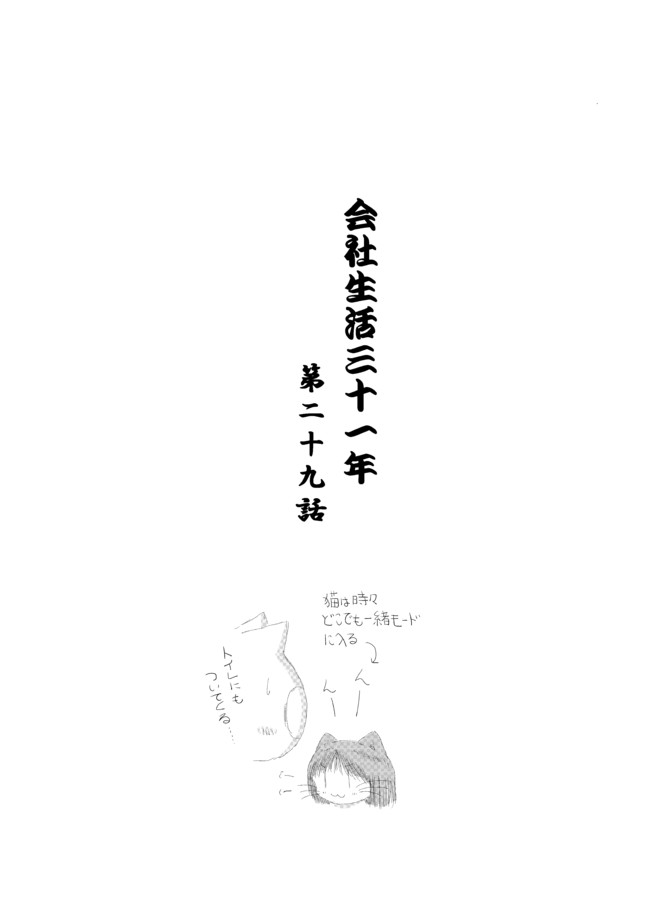 会社生活三十一年
第二十九話
猫は時々
どこでも一緒モード
に入る
ん
ん
トイレにも
ついてくる……